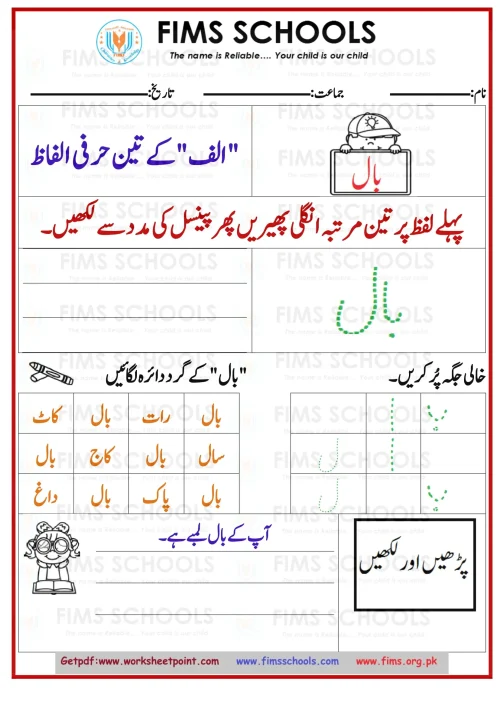 FIMS SCHOOLS
The name is Reliable.... Your child is our child
نام: جماعت: تاریخ:
بال
"الف" کے تین حرفی الفاظ
پہلے لفظ پر تین مرتبہ انگلی پھیریں پھر پینسل کی مدد سے لکھیں۔
بال
خالی جگہ پُر کریں۔
"بال" کے گرد دائرہ لگائیں
بـ ا
ا ل
بـ ل
بال رات بال کاٹ
سال بال کاج بال
بال پاک بال داغ
پڑھیں اور لکھیں
آپ کے بال لمبے ہے۔
Getpdf:www.worksheetpoint.com www.fimsschools.com www.fims.org.pk